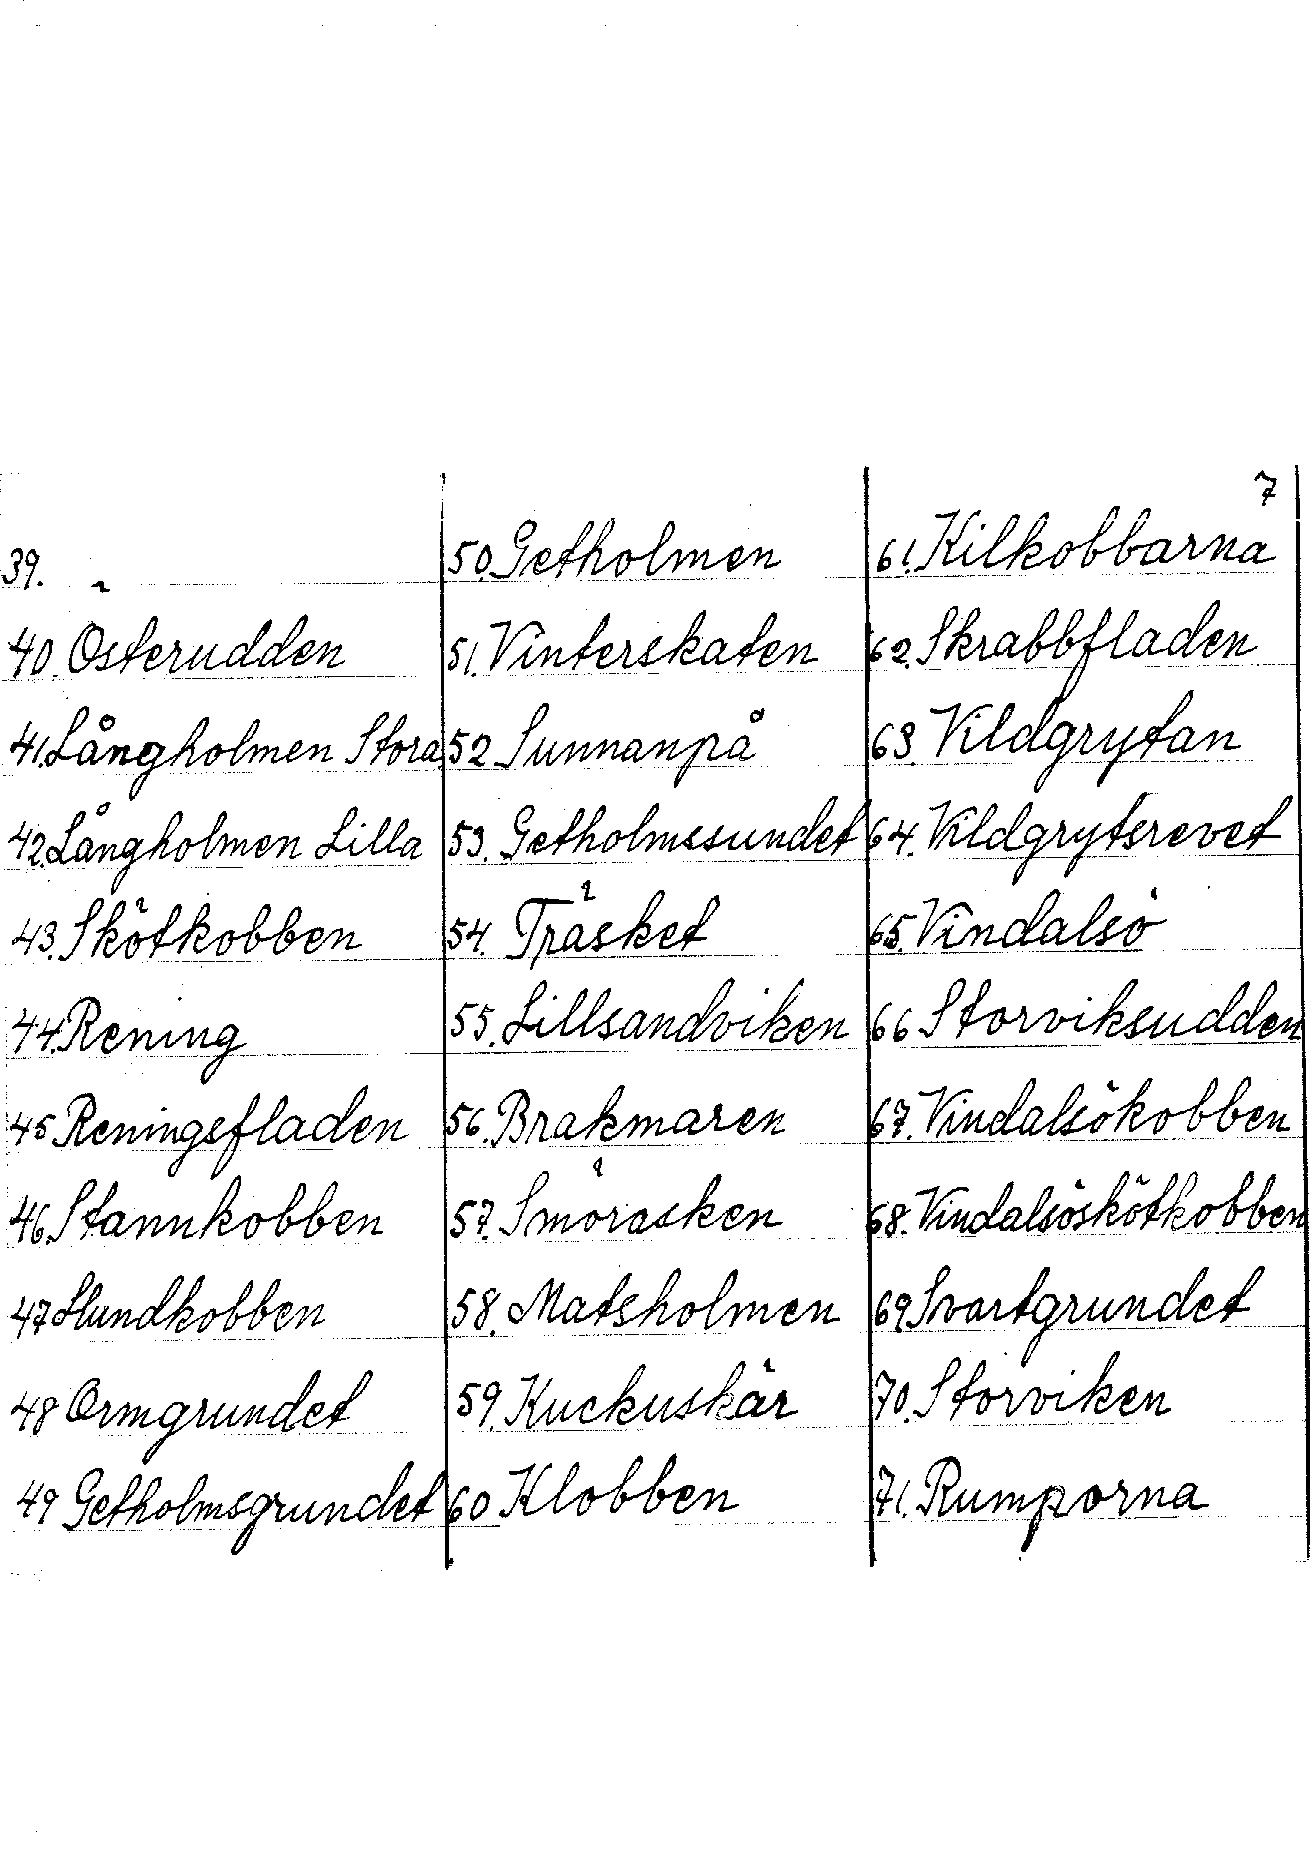 7
39.
40. Österudden
41. Långholmen Stora
42. Långholmen Lilla
43. Skötkobben
44. Rening
45 Reningsfladen
46. Stannkobben
47 Hundkobben
48 Ormgrundet
49 Getholmsgrundet
50. Getholmen
51. Vinterskaten
52 Sunnanpå
53. Getholmssundet
54. Träsket
55. Lillsandviken
56. Brakmaren
57. Smörasken
58. Matsholmen
59. Kuckuskär
60. Klobben
61. Kilkobbarna
62. Skrabbfladen
63. Vildgrytan
64. Vildgrytsrevet
65. Vindalsö
66 Storviksudden
67. Vindalsökobben
68. Vindalsöskötkobben
69 Svartgrundet
70. Storviken
71. Rumporna